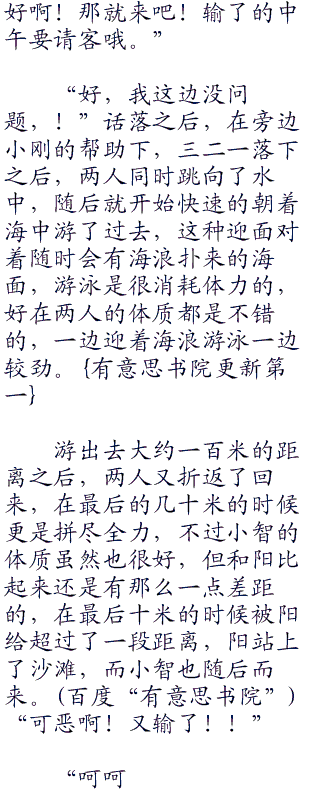 好啊！那就来吧！输了的中
午要请客哦。”
“好，我这边没问
题，！”话落之后，在旁边
小刚的帮助下，三二一落下
之后，两人同时跳向了水
中，随后就开始快速的朝着
海中游了过去，这种迎面对
着随时会有海浪扑来的海
面，游泳是很消耗体力的，
好在两人的体质都是不错
的，一边迎着海浪游泳一边
较劲。{有意思书院更新第
一}
游出去大约一百米的距
离之后，两人又折返了回
来，在最后的几十米的时候
更是拼尽全力，不过小智的
体质虽然也很好，但和阳比
起来还是有那么一点差距
的，在最后十米的时候被阳
给超过了一段距离，阳站上
了沙滩，而小智也随后而
来。(百度“有意思书院”)
“可恶啊！又输了！！”
“呵呵